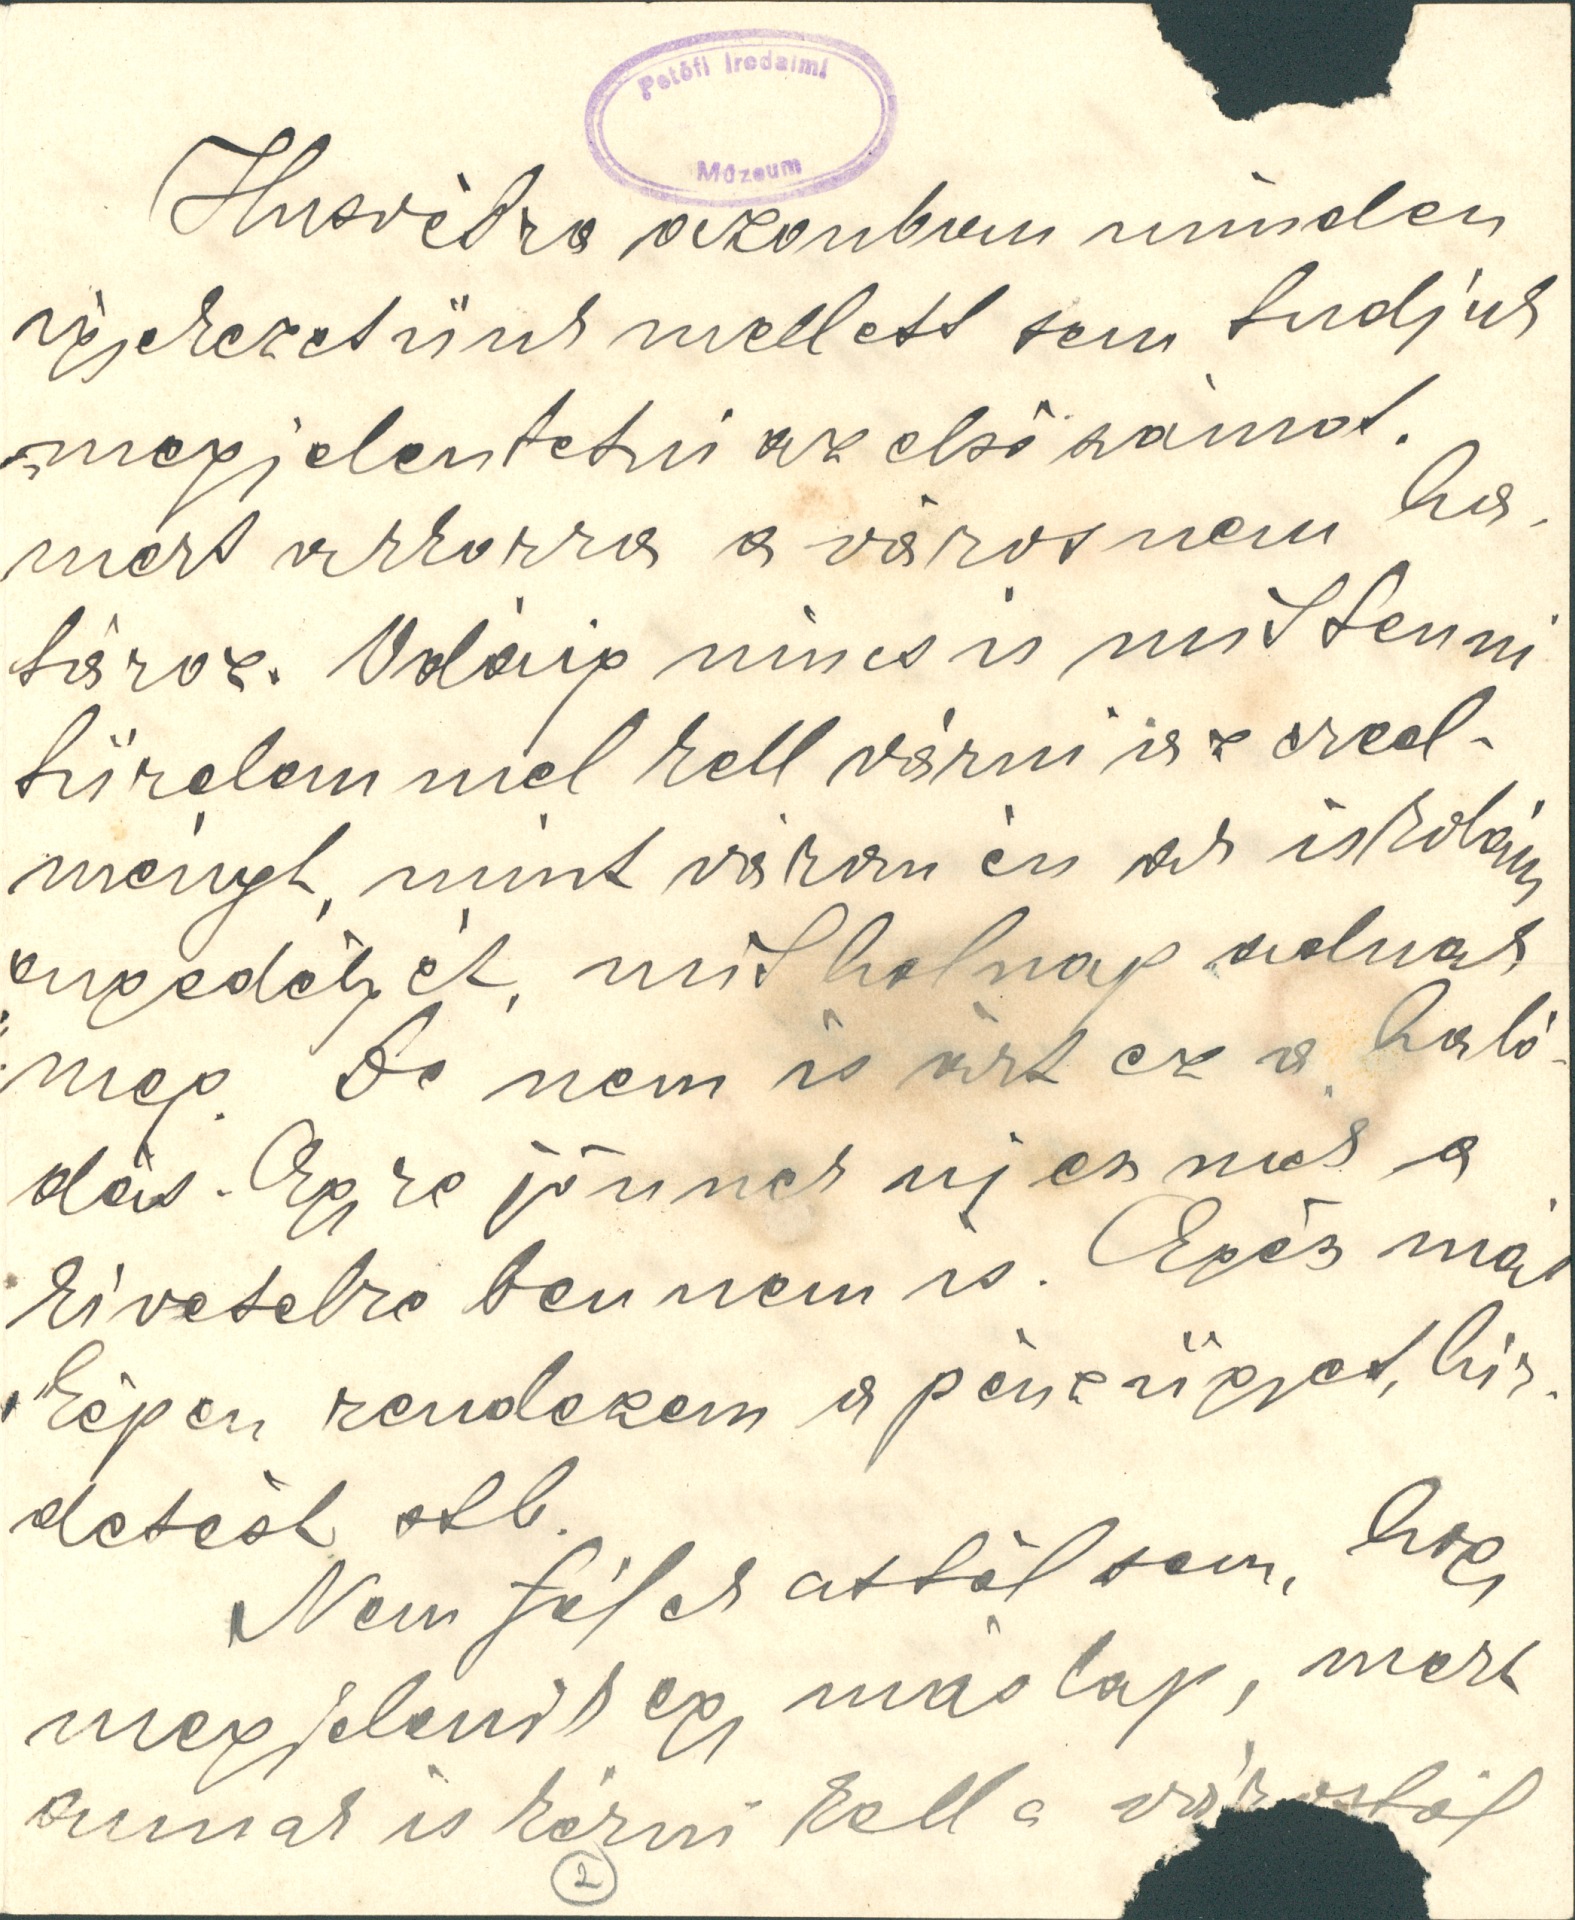 Petőfi Irodalmi
Múzeum
Husvétra azonban minden
igyekezetünk mellett sem tudjuk
megjelentetni az első számot.
mert akkorra a város nem ha-
tároz. Odáig nincs is mit tenni
türelemmel kell várni az ered-
ményt, mint várom én az iskolám
engedélyét, mit holnap adnak
meg. De nem is árt ez a haló-
dás. Egyre jönnek uj esmék a
kivetelre bennem is. Egész más
képen rendezem a pénzügyet, hir-
detést stb.
Nem félek attól sem, hogy
megjelenik egy más lap, mert
annak is kérni kell a várostól
2